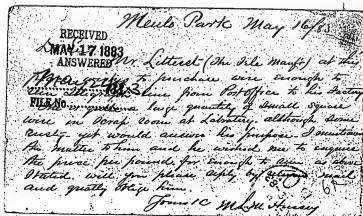 Menlo Park May 16/83
RECEIVED
MAY 17 1883
ANSWERED
188
FILE No.
Mr. (The File Manfr) at this
to purchase wire enough to
line from Post office to his Factory
a large quantity of small square
wire in Scrap at Laboratory although some
rusty yet would answer his purpose I mentioned
the matter to him and he wished me to enquire
the price per pound for enough to as above
Stated will you please reply by return mail
and greatly oblige him.
Yours